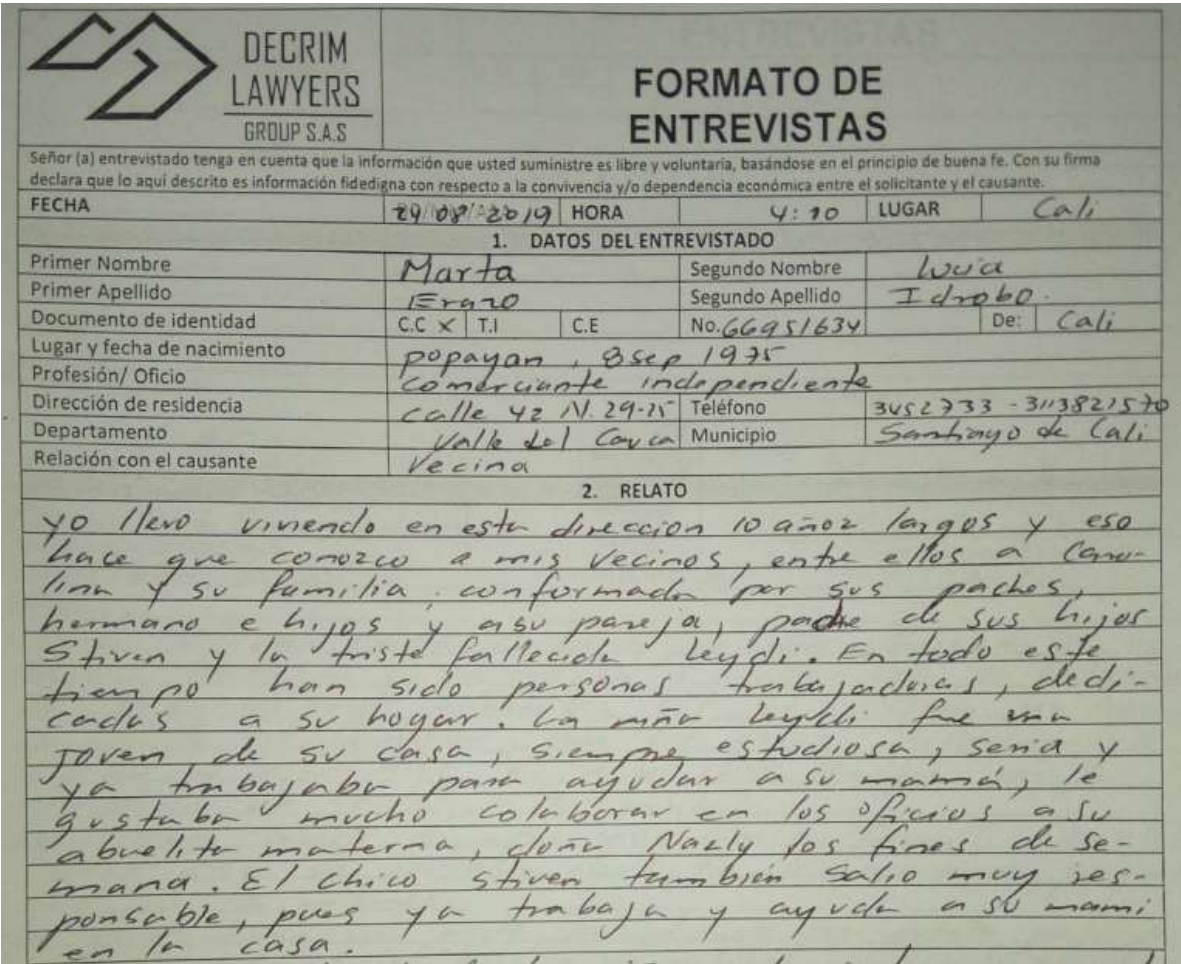 DECRIM
LAWYERS
GROUP S.A.S
FORMATO DE
ENTREVISTAS
Señor (a) entrevistado tenga en cuenta que la información que usted suministre es libre y voluntaria, basándose en el principio de buena fe. Con su firma
declara que lo aquí descrito es información fidedigna con respecto a la convivencia y/o dependencia económica entre el solicitante y el causante.
FECHA 29/08/2019 HORA 4:10 LUGAR Cali
1. DATOS DEL ENTREVISTADO
Primer Nombre Marta Segundo Nombre Lucia
Primer Apellido Erazo Segundo Apellido Idrobo.
Documento de identidad C.C X T.I C.E No. 66951634 De: Cali
Lugar y fecha de nacimiento popayan, 8 sep 1975
Profesión/ Oficio comerciante independiente
Dirección de residencia calle 42 N. 29-25 Teléfono 3452733 - 3113821570
Departamento Valle del Cauca Municipio Santiago de Cali
Relación con el causante Vecina
2. RELATO
yo llevo viviendo en esta direccion 10 añoz largos y eso
hace que conozco a mis vecinos, entre ellos a Caro-
lina y su familia, conformada por sus padres,
hermano e hijos y a su pareja, padre de sus hijos
Stiven y la triste fallecida Leydi. En todo este
tiempo han sido personas trabajadoras, dedi-
cadas a su hogar. La niña Leydi fue una
joven de su casa, siempre estudiosa, seria y
ya trabajaba para ayudar a su mamá, le
gustaba mucho colaborar en los oficios a su
abuelita materna, doña Nazly los fines de se-
mana. El chico stiven tambien salio muy res-
ponsable, pues ya trabaja y ayuda a su mami
en la casa.